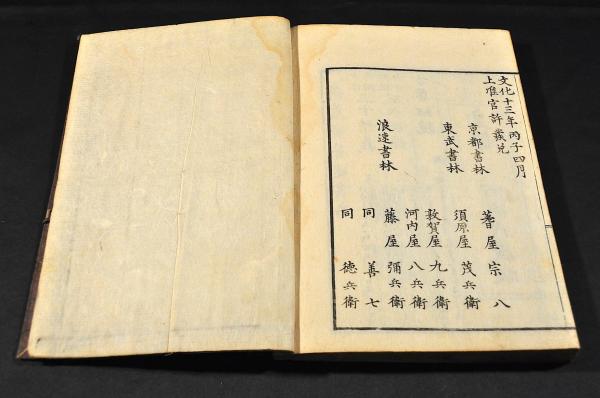 文化十三年丙子四月
上准官許發兌
京都書林 蓍屋宗八
東武書林 須原屋茂兵衛
敦賀屋九兵衛
浪速書林 河内屋八兵衛
藤屋彌兵衛
同 善七
同 徳兵衛